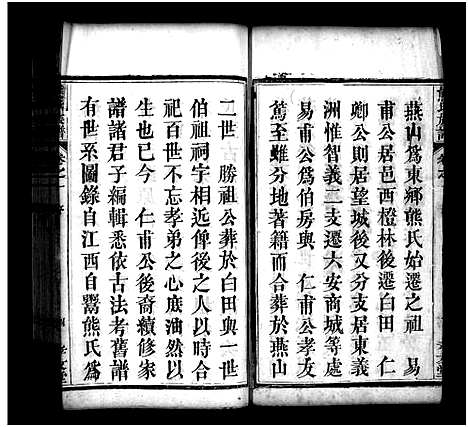 燕山爲東鄉熊氏始遷之祖 易
甫公居邑西橙林後遷白田 仁
卿公則居望城後又分支居東義
洲惟智義二支遷六安商城等處
易甫公爲伯房與 仁甫公孝友
篤至雖分地著籍而合葬於燕山
二世 勝祖公葬於白田與一世
伯祖祠宇相近俾後之人以時合
祀百世不忘孝弟之心庶油然以
生也已今 仁甫公後裔續修家
譜諸君子編輯悉依古法考舊譜
有世系圖錄自江西自鬻熊氏爲